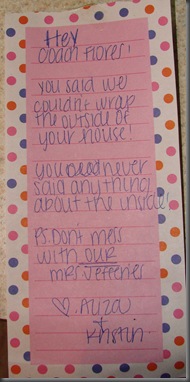 Hey
Coach Flores!
You said we
couldn't wrap
the outside of
your house!
you never
said anything
about the inside!
P.S. Don't mess
with our
Mrs. Jefferies
♡ Aliza
+
Kristin